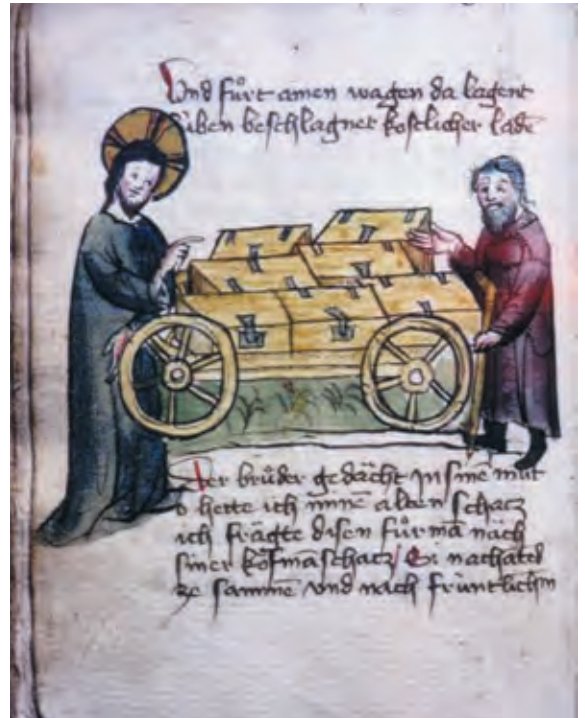 Vnd fůrt ainen wagen da lagent
siben beschlagner kostlicher lade
Der brůder gedächt in sinē mut
o hette ich minē alten schatz
ich frägte disen fůrmā näch
siner kofmāschatz
ze sammē vnd näch früntlichm